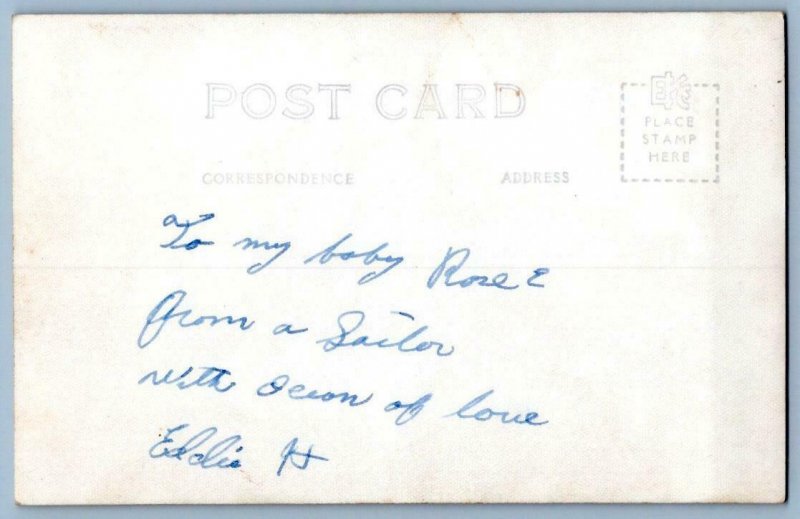 POST CARD
PLACE
STAMP
HERE
CORRESPONDENCE
ADDRESS
To my baby Rose E
from a Sailor
with Ocean of love
Eddie H